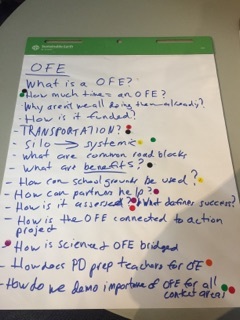 OFE
What is a OFE?
How much time = an OFE?
Why aren't we all doing them already?
- How is it funded?
- TRANSPORTATION?
- Silo → systemic
- what are common road blocks
- What are benefits?
- How can school grounds be used?
- How can partners help?
- How is it assessed? What defines success?
- How is the OFE connected to action project
- How is science & OFE bridged
- How does PD prep teachers for OFE
- How do we demo importance of OFE for all content areas